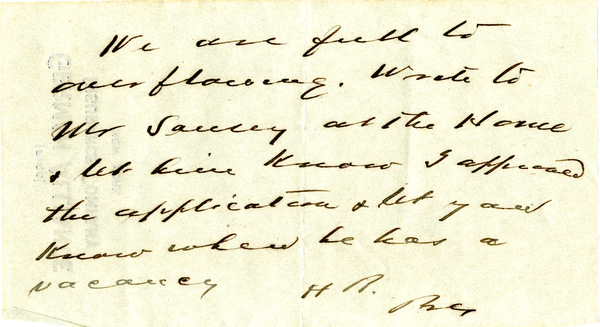 We are full to
overflowing. Write to
Mr Sausey at the Home
& let him Know I approved
the application & let you
Know when he has a
vacancy H R. Pres